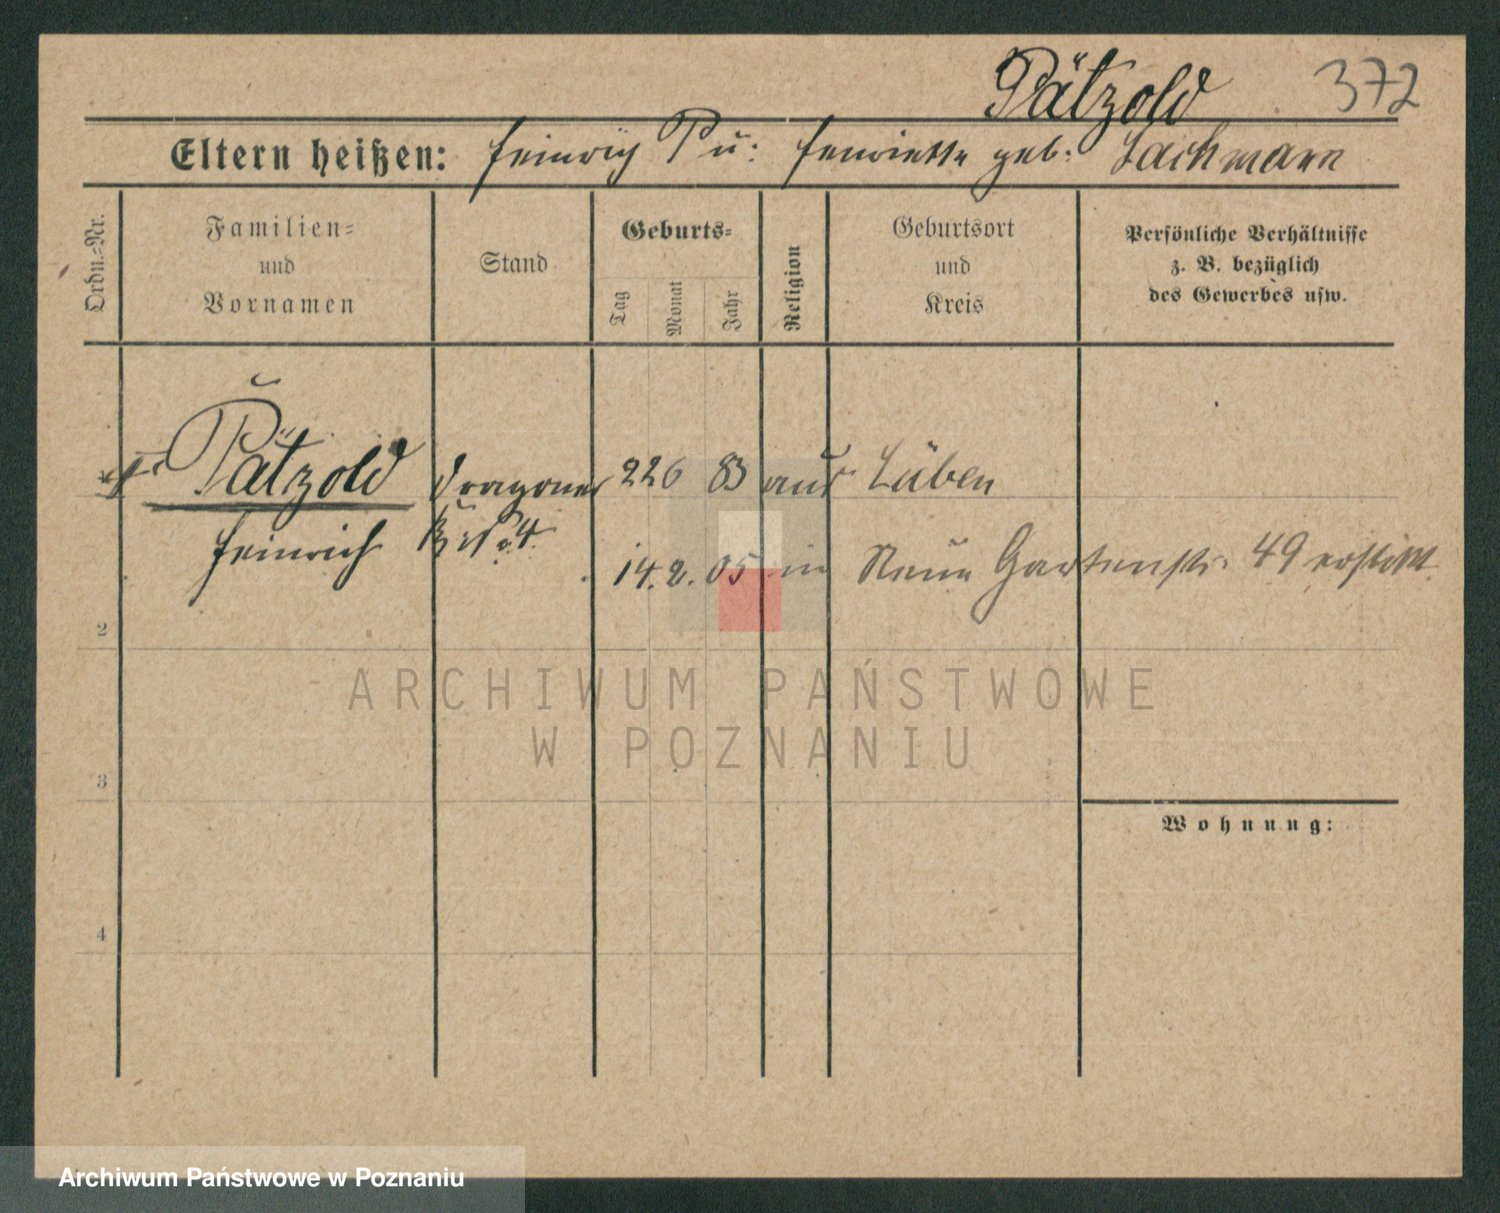 Pätzold 372
Eltern heißen: Heinrich P u: Henriette geb. Lachmann
Ordn.-Nr.
Familien- und Vornamen
Stand
Geburts-
Tag Monat Jahr
Religion
Geburtsort und Kreis
Persönliche Verhältnisse
z. B. bezüglich
des Gewerbes usw.
Pätzold Dragoner 22 6 83 aus Lüben
Heinrich
14. 2. 05 in Neue Gartenstr. 49 erstickt
2
3
4
Wohnung:
ARCHIWUM PAŃSTWOWE
W POZNANIU
Archiwum Państwowe w Poznaniu